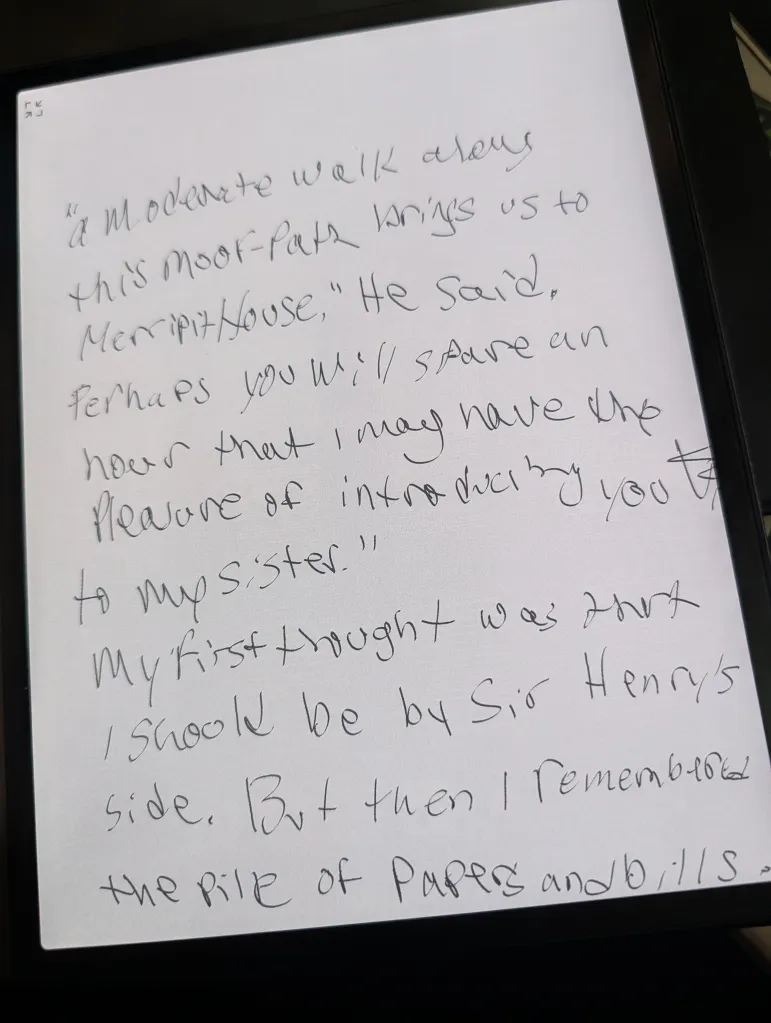 "a moderate walk along
this moor-Path brings us to
Merripit House," He said.
Perhaps you will spare an
hour that I may have the
Pleasure of introducing you
to my sister."
My first thought was that
I should be by Sir Henry's
side. But then I remembered
the pile of Papers and bills.